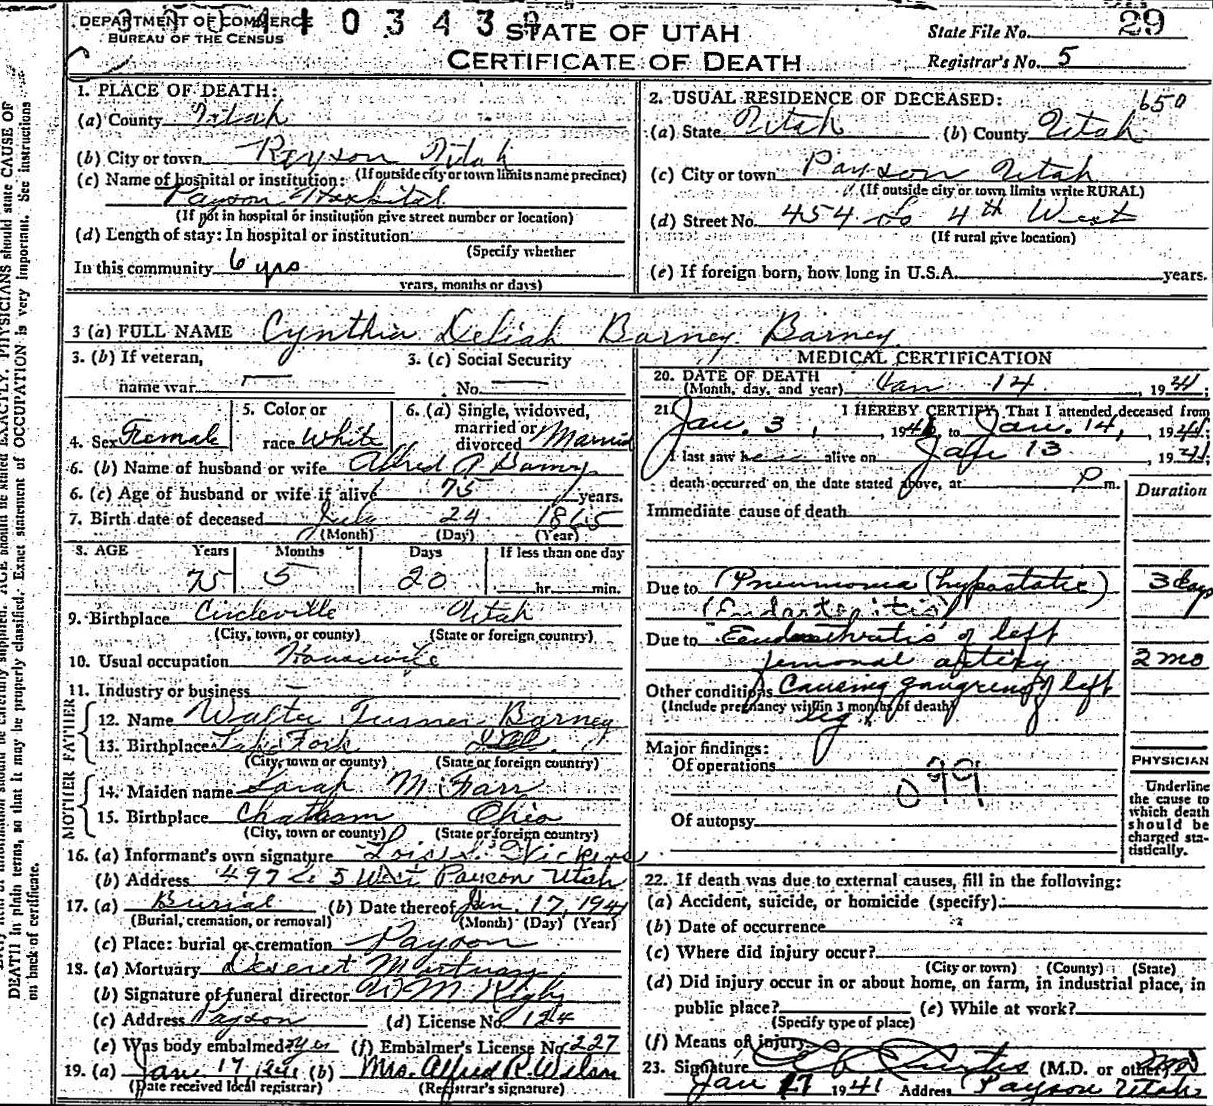 DEPARTMENT OF COMMERCE
BUREAU OF THE CENSUS
STATE OF UTAH
CERTIFICATE OF DEATH
State File No. 29
Registrar's No. 5
1. PLACE OF DEATH:
(a) County Utah
(b) City or town Payson Utah
(If outside city or town limits name precinct)
(c) Name of hospital or institution:
Payson Hospital
(If not in hospital or institution give street number or location)
(d) Length of stay: In hospital or institution
(Specify whether
In this community 6 yrs
years, months or days)
2. USUAL RESIDENCE OF DECEASED: 650
(a) State Utah (b) County Utah
(c) City or town Payson Utah
(If outside city or town limits write RURAL)
(d) Street No. 454 So 4th West
(If rural give location)
(e) If foreign born, how long in U.S.A. years.
3 (a) FULL NAME Cynthia Deliah Barney Barney
3. (b) If veteran,
name war
3. (c) Social Security
No.
4. Sex Female
5. Color or
race White
6. (a) Single, widowed,
married or
divorced Married
6. (b) Name of husband or wife Alfred A Barney
6. (c) Age of husband or wife if alive 75 years.
7. Birth date of deceased July 24 1865
(Month) (Day) (Year)
8. AGE Years Months Days If less than one day
75 5 20 hr. min.
9. Birthplace Circleville Utah
(City, town, or county) (State or foreign country)
10. Usual occupation Housewife
11. Industry or business
FATHER
12. Name Walter Turner Barney
13. Birthplace Lake Fork Ill.
(City, town or county) (State or foreign country)
MOTHER
14. Maiden name Sarah M. Farr
15. Birthplace Chatham Ohio
(City, town or county) (State or foreign country)
16. (a) Informant's own signature Lois S. Vickers
(b) Address 497 So 5 West Payson Utah
17. (a) Burial (b) Date thereof Jan. 17, 1941
(Burial, cremation, or removal) (Month) (Day) (Year)
(c) Place: burial or cremation Payson
18. (a) Mortuary Deseret Mortuary
(b) Signature of funeral director W M Rigby
(c) Address Payson (d) License No. 124
(e) Was body embalmed? yes (f) Embalmer's License No. 227
19. (a) Jan 17 1941 (b) Mrs. Alfred R. Wilson
(Date received local registrar) (Registrar's signature)
MEDICAL CERTIFICATION
20. DATE OF DEATH
(Month, day, and year) Jan 14, 1941;
21. I HEREBY CERTIFY, That I attended deceased from
Jan. 3, 1941 to Jan. 14, 1941;
I last saw her alive on Jan 13, 1941;
death occurred on the date stated above, at P m.
Duration
Immediate cause of death
Due to Pneumonia (hypostatic) 3 days
(Endarteritis)
Due to of left
femoral artery 2 mo
Other conditions Causing gangrene of left
(Include pregnancy within 3 months of death)
leg.
Major findings:
Of operations
099
Of autopsy
PHYSICIAN
Underline
the cause to
which death
should be
charged sta-
tistically.
22. If death was due to external causes, fill in the following:
(a) Accident, suicide, or homicide (specify)
(b) Date of occurrence
(c) Where did injury occur?
(City or town) (County) (State)
(d) Did injury occur in or about home, on farm, in industrial place, in
public place? (e) While at work?
(Specify type of place)
(f) Means of injury
23. Signature Curtis (M.D. or other) MD
Jan 17 1941 Address Payson Utah